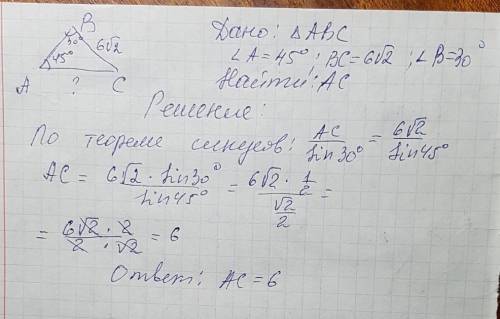 B
30°
6√2
45°
A ? C
Дано: △ABC
∠A=45°; BC=6√2; ∠B=30°
Найти: AC
Решение:
По теореме синусов: AC/sin30° = 6√2/sin45°
AC = 6√2 · sin30°/sin45° = (6√2 · 1/2)/(√2/2) =
= 6√2 · 2/(2 · √2) = 6
Ответ: AC = 6